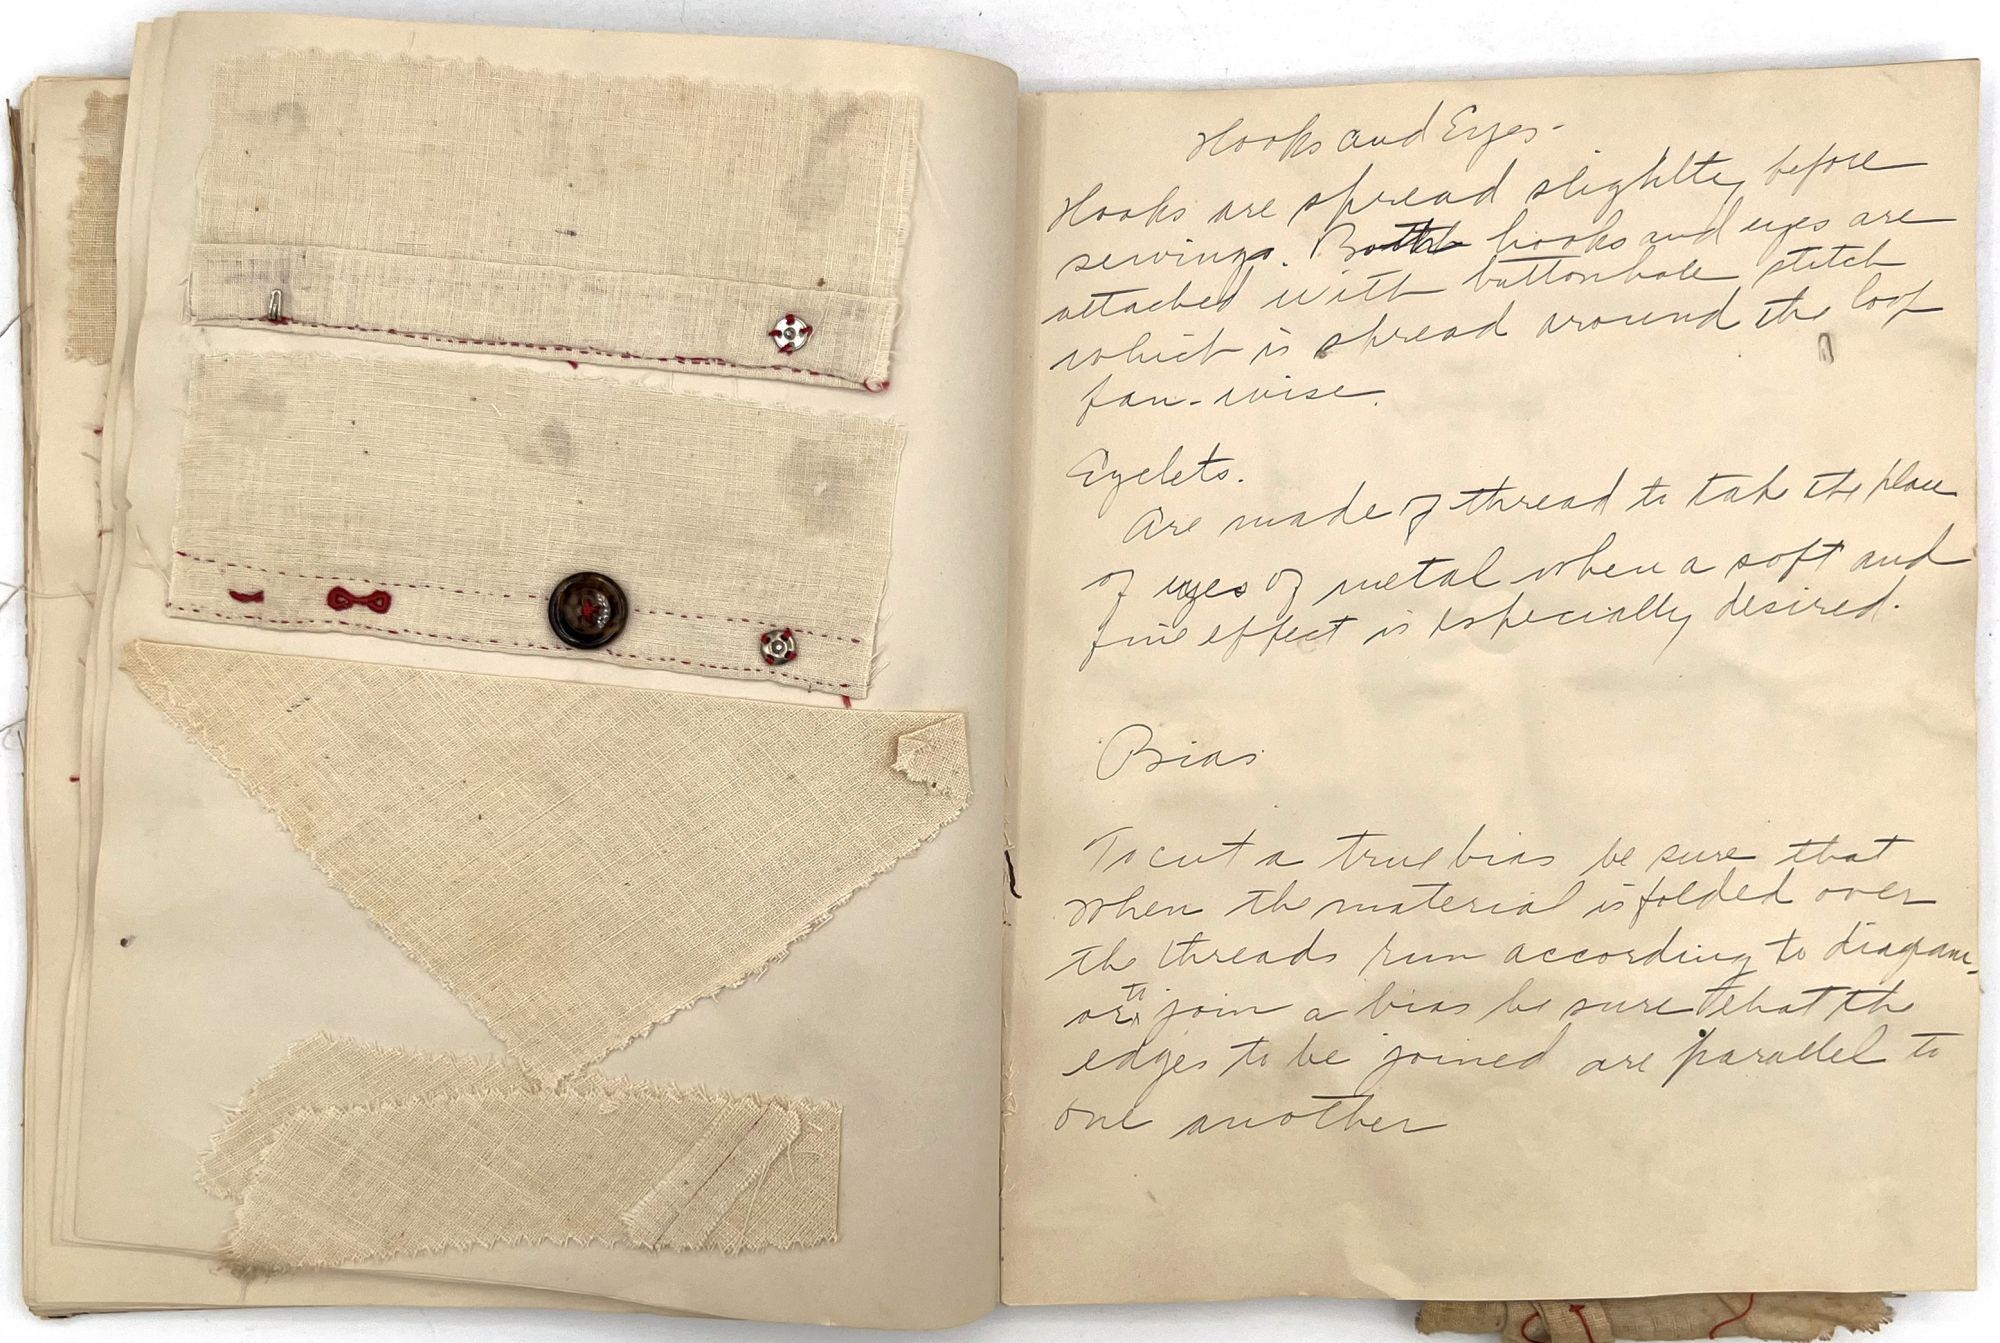 Hooks and Eyes-
Hooks are spread slightly before
sewing. Both hooks and eyes are
attached with buttonhole stitch
which is spread around the loop
fan-wise.
Eyelets.
Are made of thread to take the place
of eyes of metal when a soft and
fine effect is especially desired.
Bias
To cut a true bias be sure that
when the material is folded over
the threads run according to diagram-
or to join a bias be sure that the
edges to be joined are parallel to
one another